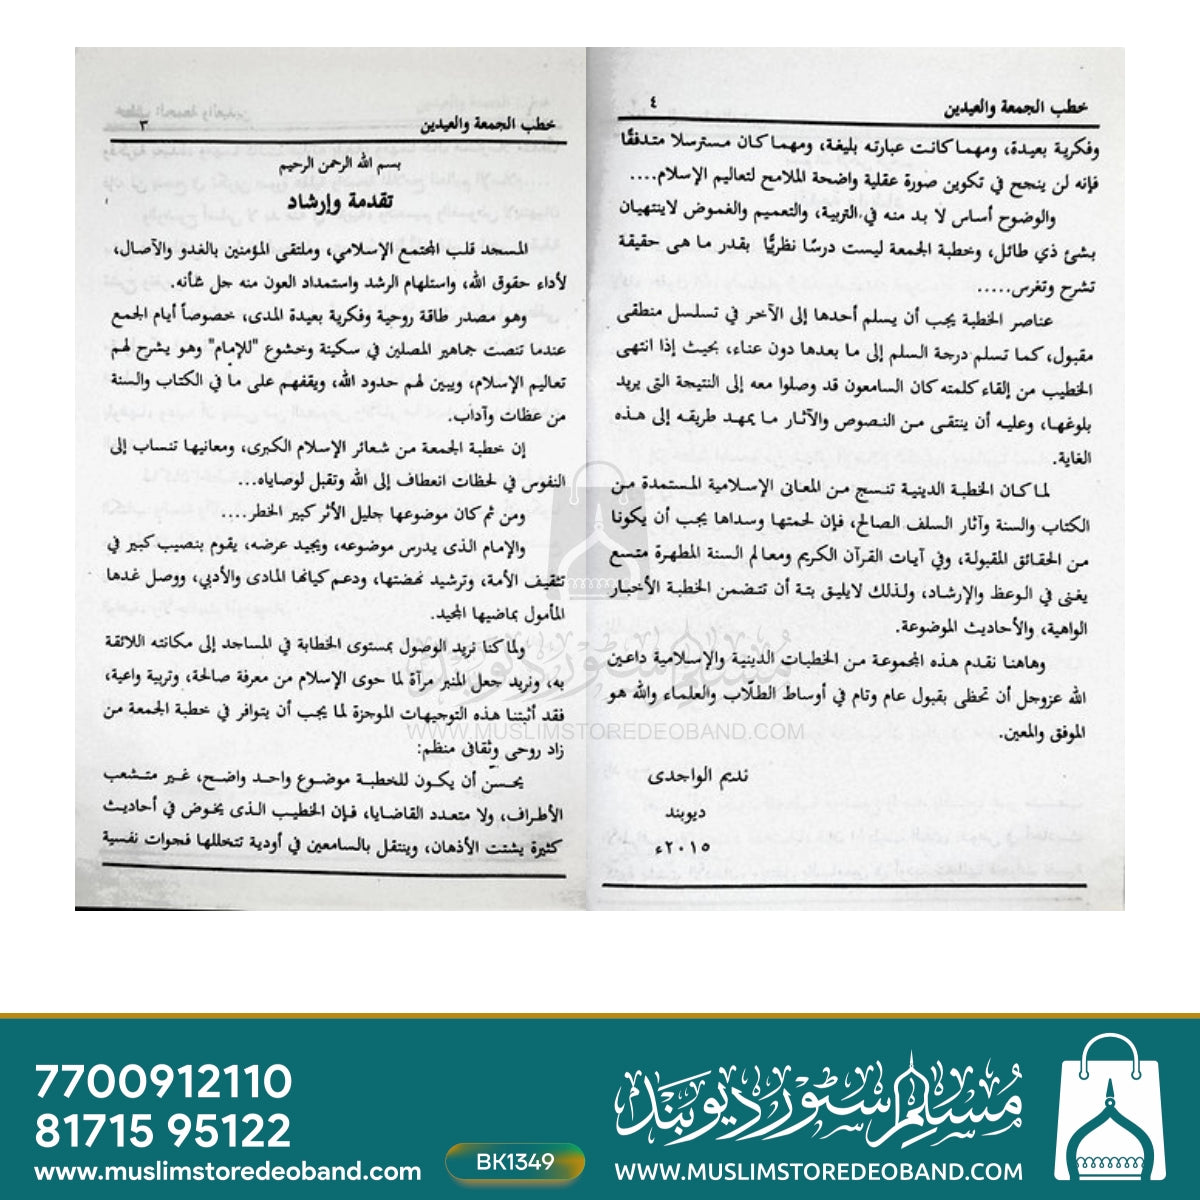 خطب الجمعة والعيدين
٣
بسم الله الرحمن الرحيم
تقدمة وإرشاد
المسجد قلب المجتمع الإسلامي، وملتقى المؤمنين بالغدو والآصال،
لأداء حقوق الله، واستلهام الرشد واستمداد العون منه جل شأنه.
وهو مصدر طاقة روحية وفكرية بعيدة المدى، خصوصاً أيام الجمع
عندما تنصت جماهير المصلين في سكينة وخشوع "للإمام" وهو يشرح لهم
تعاليم الإسلام، ويبين لهم حدود الله، ويقفهم على ما في الكتاب والسنة
من عظات وآداب.
إن خطبة الجمعة من شعائر الإسلام الكبرى، ومعانيها تنساب إلى
النفوس في لحظات انعطاف إلى الله وتقبل لوصاياه...
ومن ثم كان موضوعها جليل الأثر كبير الخطر....
والإمام الذى يدرس موضوعه، ويجيد عرضه، يقوم بنصيب كبير في
تثقيف الأمة، وترشيد نهضتها، ودعم كيانها المادى والأدبي، ووصل غدها
المأمول بماضيها المجيد.
ولما كنا نريد الوصول بمستوى الخطابة في المساجد إلى مكانته اللائقة
به، ونريد جعل المنبر مرآة لما حوى الإسلام من معرفة صالحة، وتربية واعية،
فقد أثبتنا هذه التوجيهات الموجزة لما يجب أن يتوافر في خطبة الجمعة من
زاد روحى وثقافى منظم:
يحسن أن يكون للخطبة موضوع واحد واضح، غير متشعب
الأطراف، ولا متعدد القضايا، فإن الخطيب الذى يخوض في أحاديث
كثيرة يشتت الأذهان، وينتقل بالسامعين في أودية تتخللها فجوات نفسية
خطب الجمعة والعيدين
٤
وفكرية بعيدة، ومهما كانت عبارته بليغة، ومهما كان مسترسلا متدفقًا
فإنه لن ينجح في تكوين صورة عقلية واضحة الملامح لتعاليم الإسلام....
والوضوح أساس لا بد منه في التربية، والتعميم والغموض لاينتهيان
بشئ ذي طائل، وخطبة الجمعة ليست درسًا نظريًّا بقدر ما هى حقيقة
تشرح وتغرس.....
عناصر الخطبة يجب أن يسلم أحدها إلى الآخر في تسلسل منطقى
مقبول، كما تسلم درجة السلم إلى ما بعدها دون عناء، بحيث إذا انتهى
الخطيب من إلقاء كلمته كان السامعون قد وصلوا معه إلى النتيجة التى يريد
بلوغها، وعليه أن ينتقى من النصوص والآثار ما يمهد طريقه إلى هذه
الغاية.
لما كان الخطبة الدينية تنسج من المعانى الإسلامية المستمدة من
الكتاب والسنة وآثار السلف الصالح، فإن لحمتها وسداها يجب أن يكونا
من الحقائق المقبولة، وفي آيات القرآن الكريم ومعالم السنة المطهرة متسع
يغنى في الوعظ والإرشاد، ولذلك لايليق بتة أن تتضمن الخطبة الأخبار
الواهية، والأحاديث الموضوعة.
وهاهنا نقدم هذه المجموعة من الخطبات الدينية والإسلامية داعين
الله عزوجل أن تحظى بقبول عام وتام في أوساط الطلّاب والعلماء والله هو
الموفق والمعين.
نديم الواجدى
ديوبند
٢٠١٥ء
مسلم سٹور ديوبند
WWW.MUSLIMSTOREDEOBAND.COM
7700912110
81715 95122
www.muslimstoredeoband.com
BK1349
مسلم سٹور ديوبند
WWW.MUSLIMSTOREDEOBAND.COM